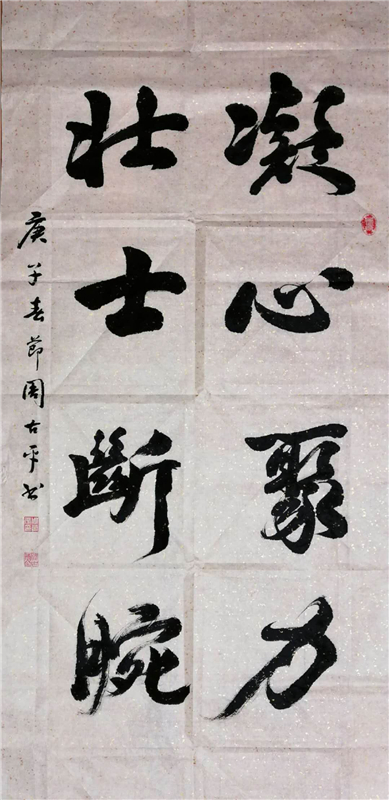 凝心聚力
壮士斷腕
庚子春節周古平书